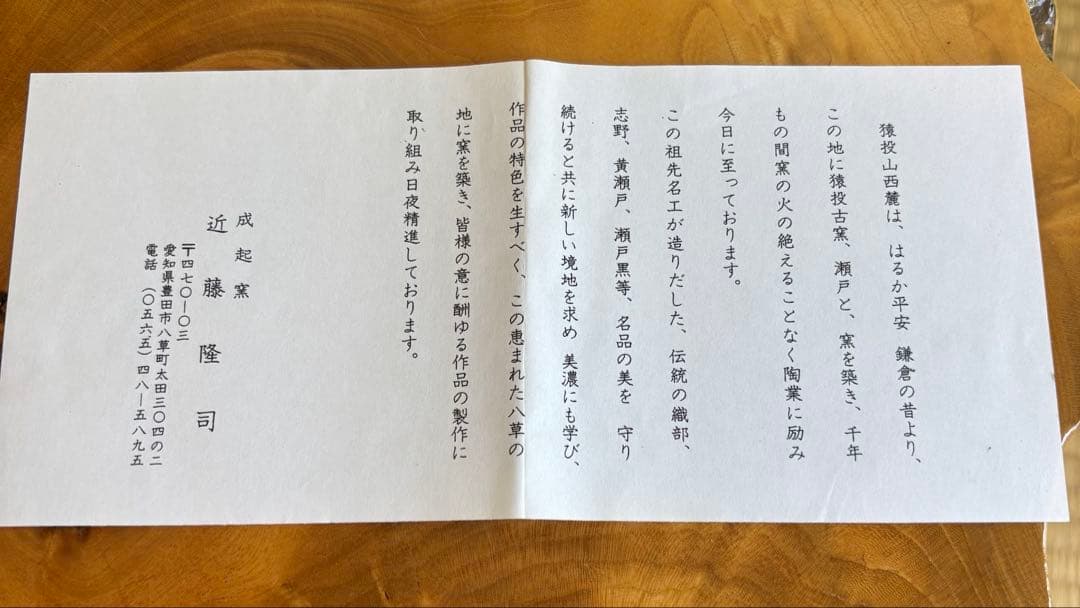 猿投山西麓は、はるか平安　鎌倉の昔より、
この地に猿投古窯、瀬戸と、窯を築き、千年
もの間窯の火の絶えることなく陶業に励み
今日に至っております。
この祖先名工が造りだした、伝統の織部、
志野、黄瀬戸、瀬戸黒等、名品の美を　守り
続けると共に新しい境地を求め　美濃にも学び、
作品の特色を生すべく、この恵まれた八草の
地に窯を築き、皆様の意に酬ゆる作品の製作に
取り組み日夜精進しております。
成起窯
近藤隆司
〒四七〇―〇三
愛知県豊田市八草町太田三〇四の二
電話（〇五六五）四八―五八九五